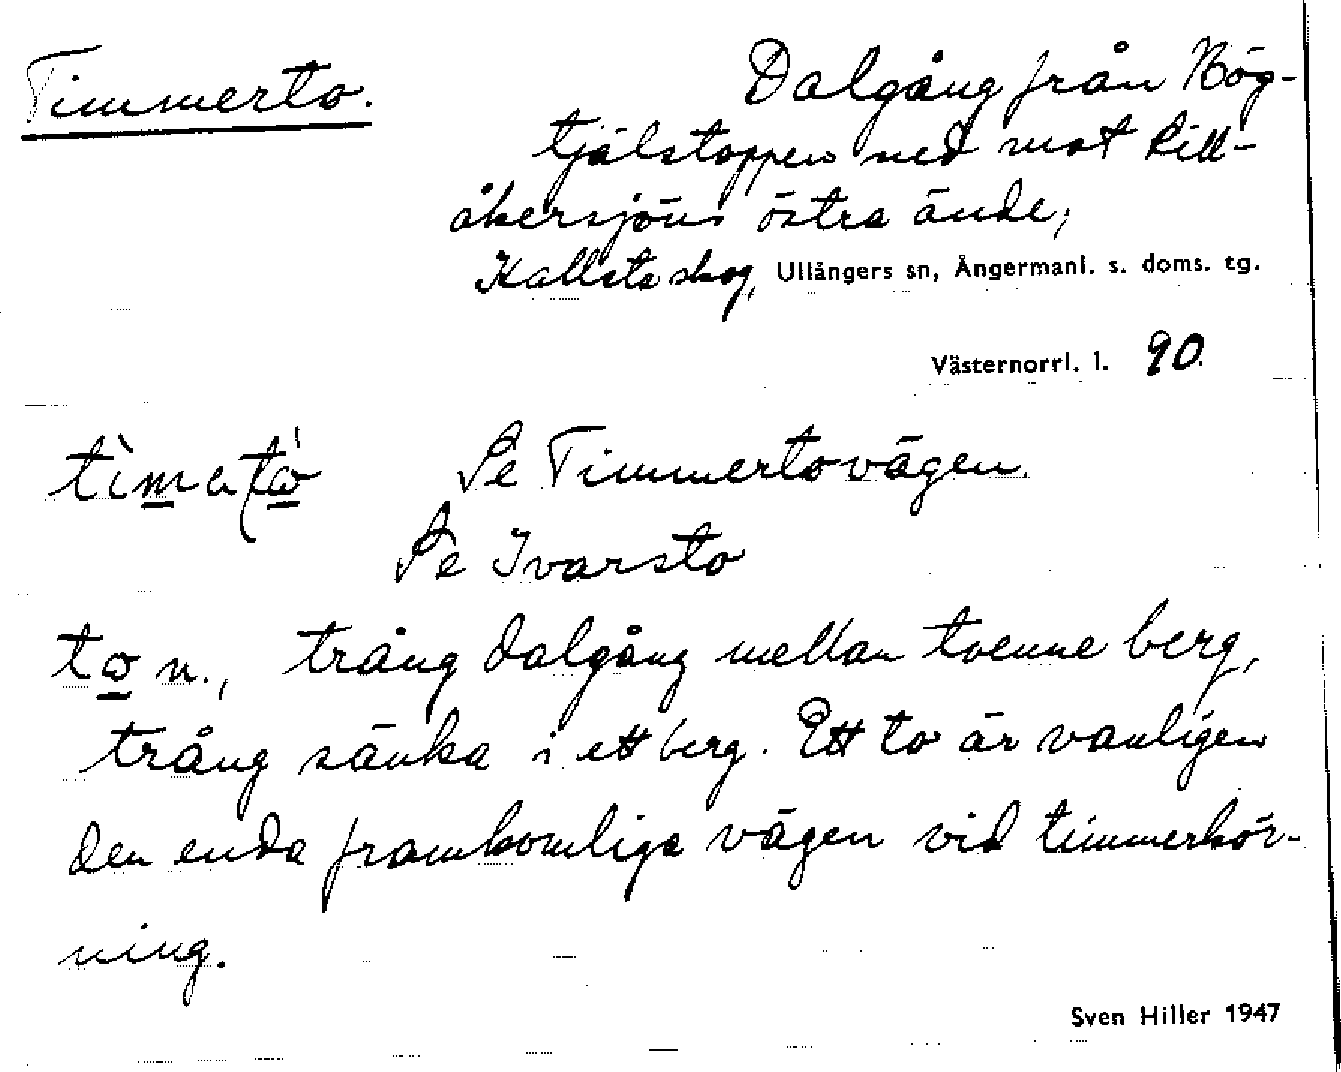 Timmerto.
Dalgång från Hög-
tjälstoppen ned mot Lill-
åkersjöns östra ände,
Kallsta skog, Ullångers sn, Ångermanl. s. doms. tg.
Västernorrl. l. 90.
Se Timmertovägen.
Se Ivarsto
to n., trång dalgång mellan tvenne berg,
trång sänka i ett berg. Ett to är vanligen
den enda framkomliga vägen vid timmerkör-
ning.
Sven Hiller 1947